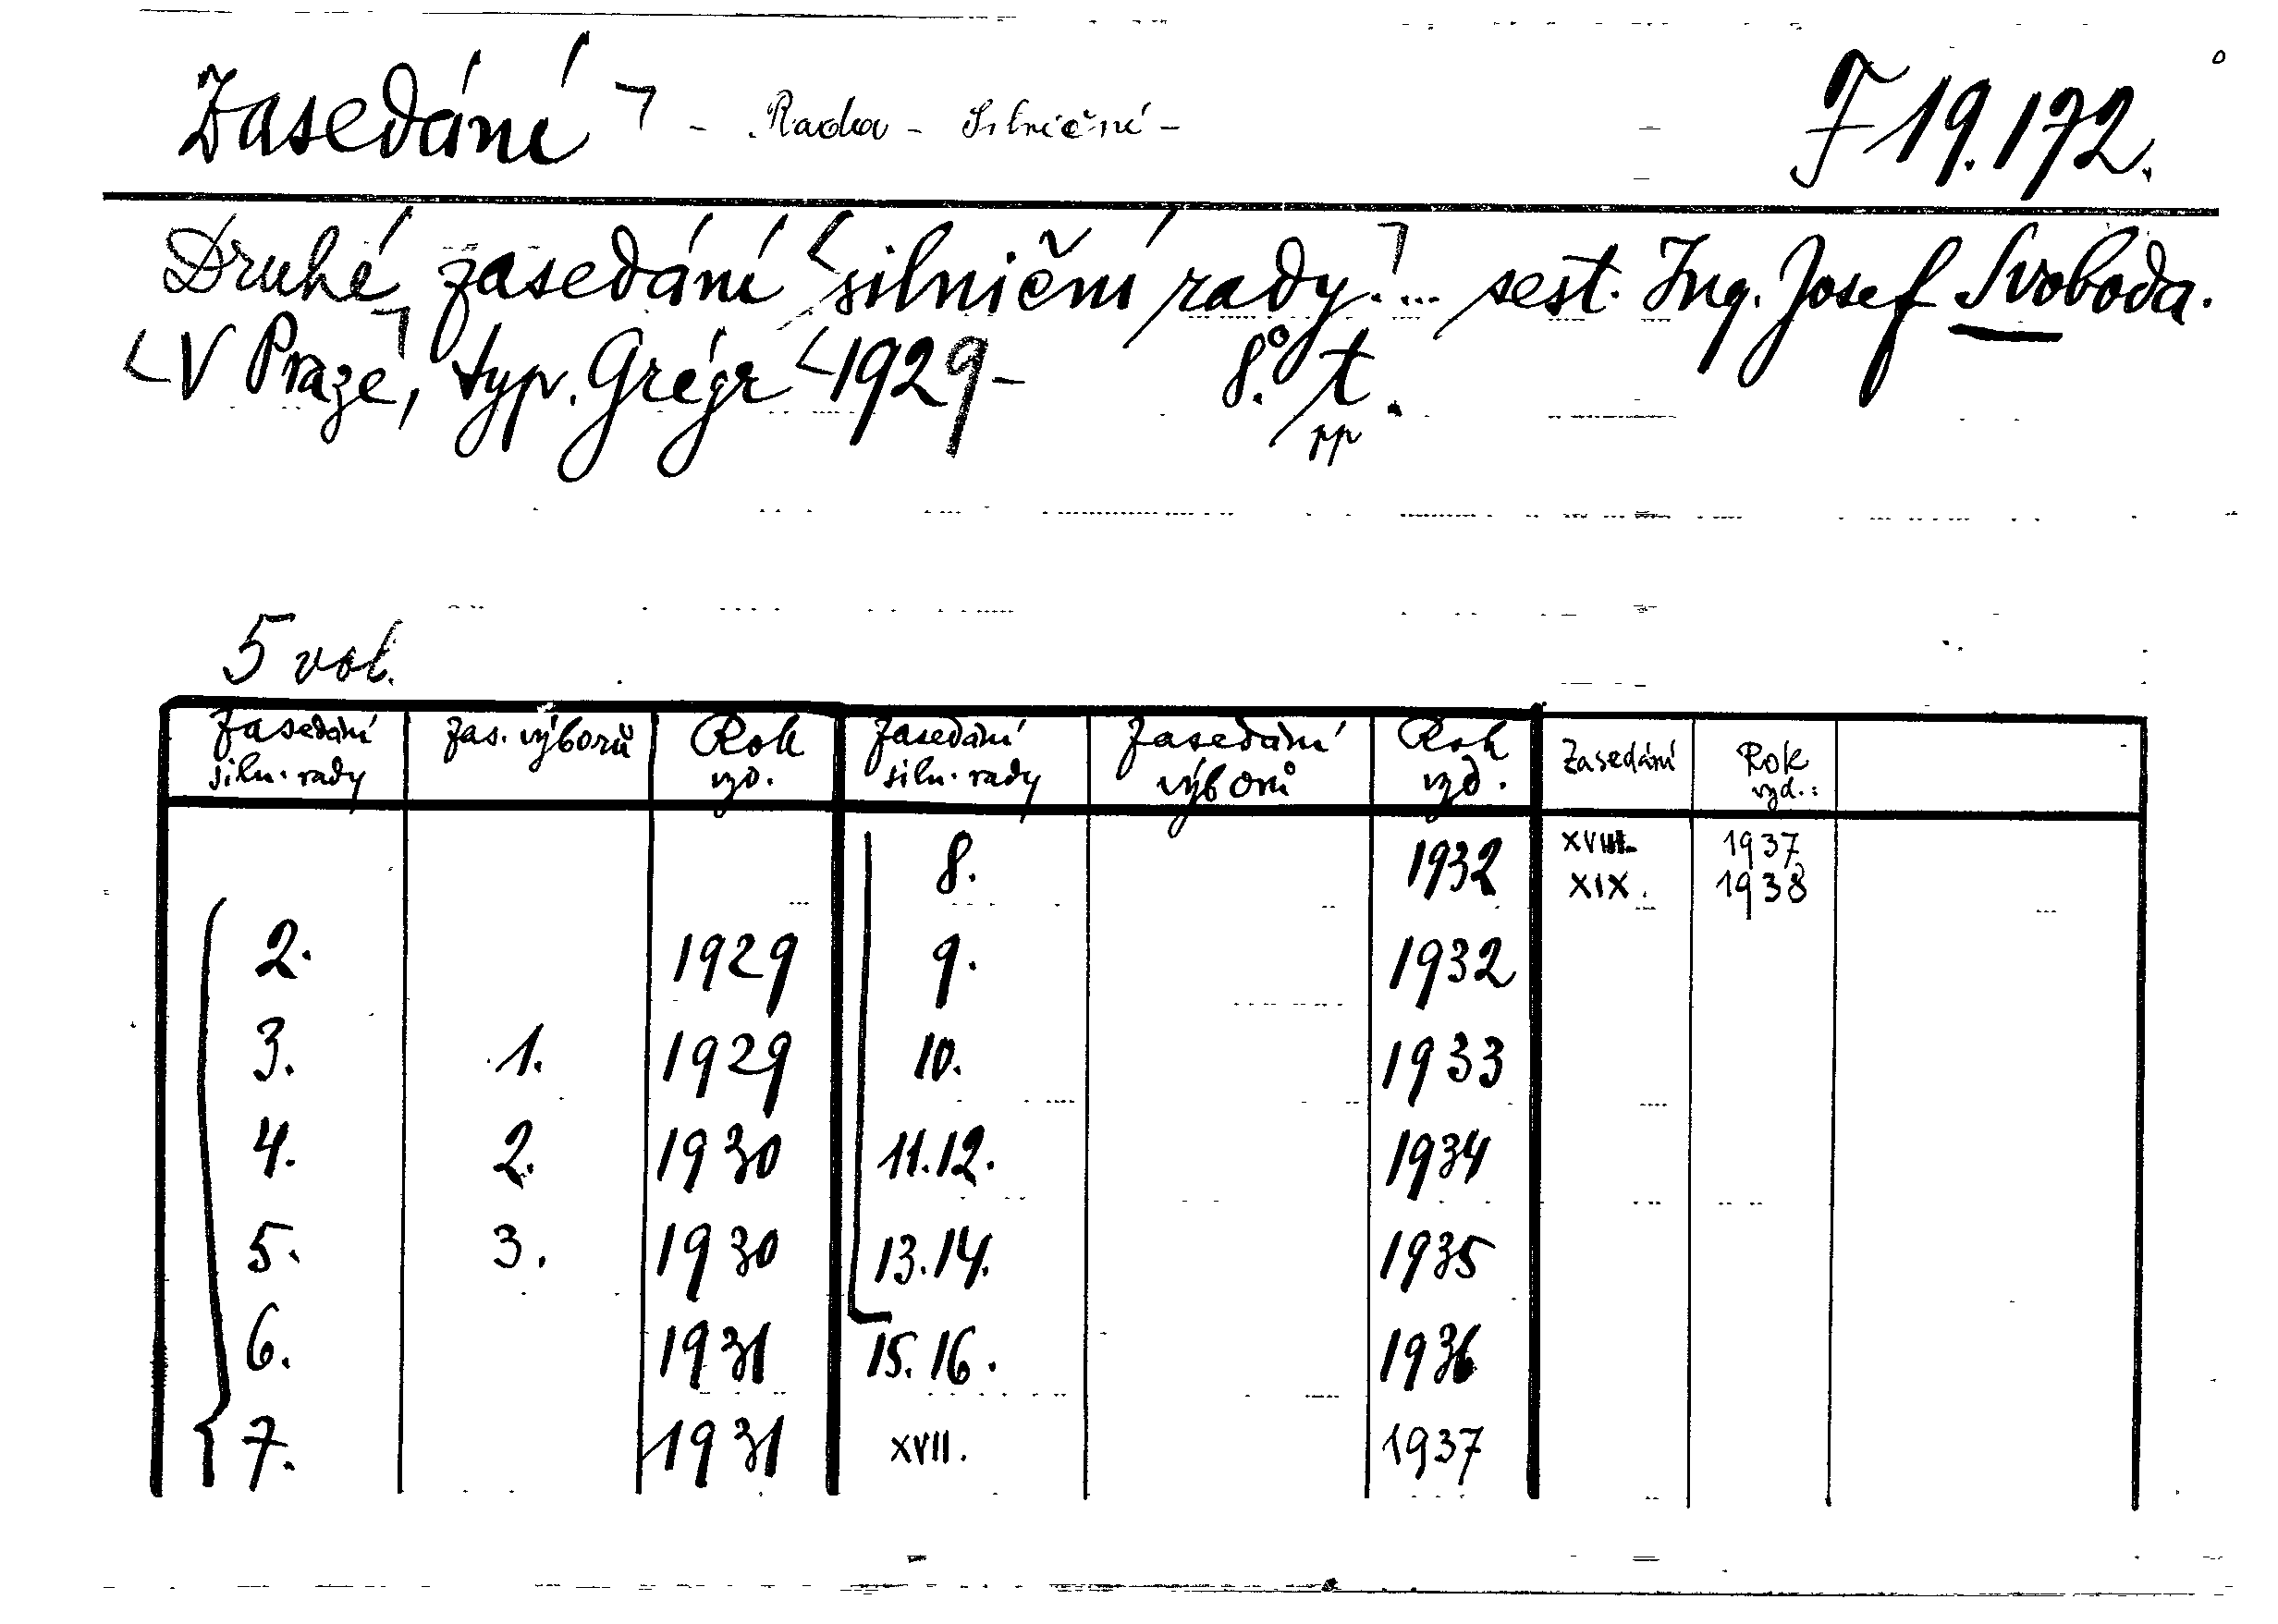 Zasedání ⌝ - Rada - Silniční - F 19.172.
Druhé zasedání silniční rady. ... sest. Ing. Josef Svoboda.
V Praze, typ. Grégr 1929- 8.° t.
pp
5 vol.
Zasedání siln. rady | zas. výborů | Rok vyd. | Zasedání siln. rady | Zasedání výborů | Rok vyd. | Zasedání | Rok vyd.:
8. 1932 XVIII. 1937
XIX. 1938
2. 1929 9. 1932
3. 1. 1929 10. 1933
4. 2. 1930 11.12. 1934
5. 3. 1930 13.14. 1935
6. 1931 15.16. 1936
7. 1931 XVII. 1937